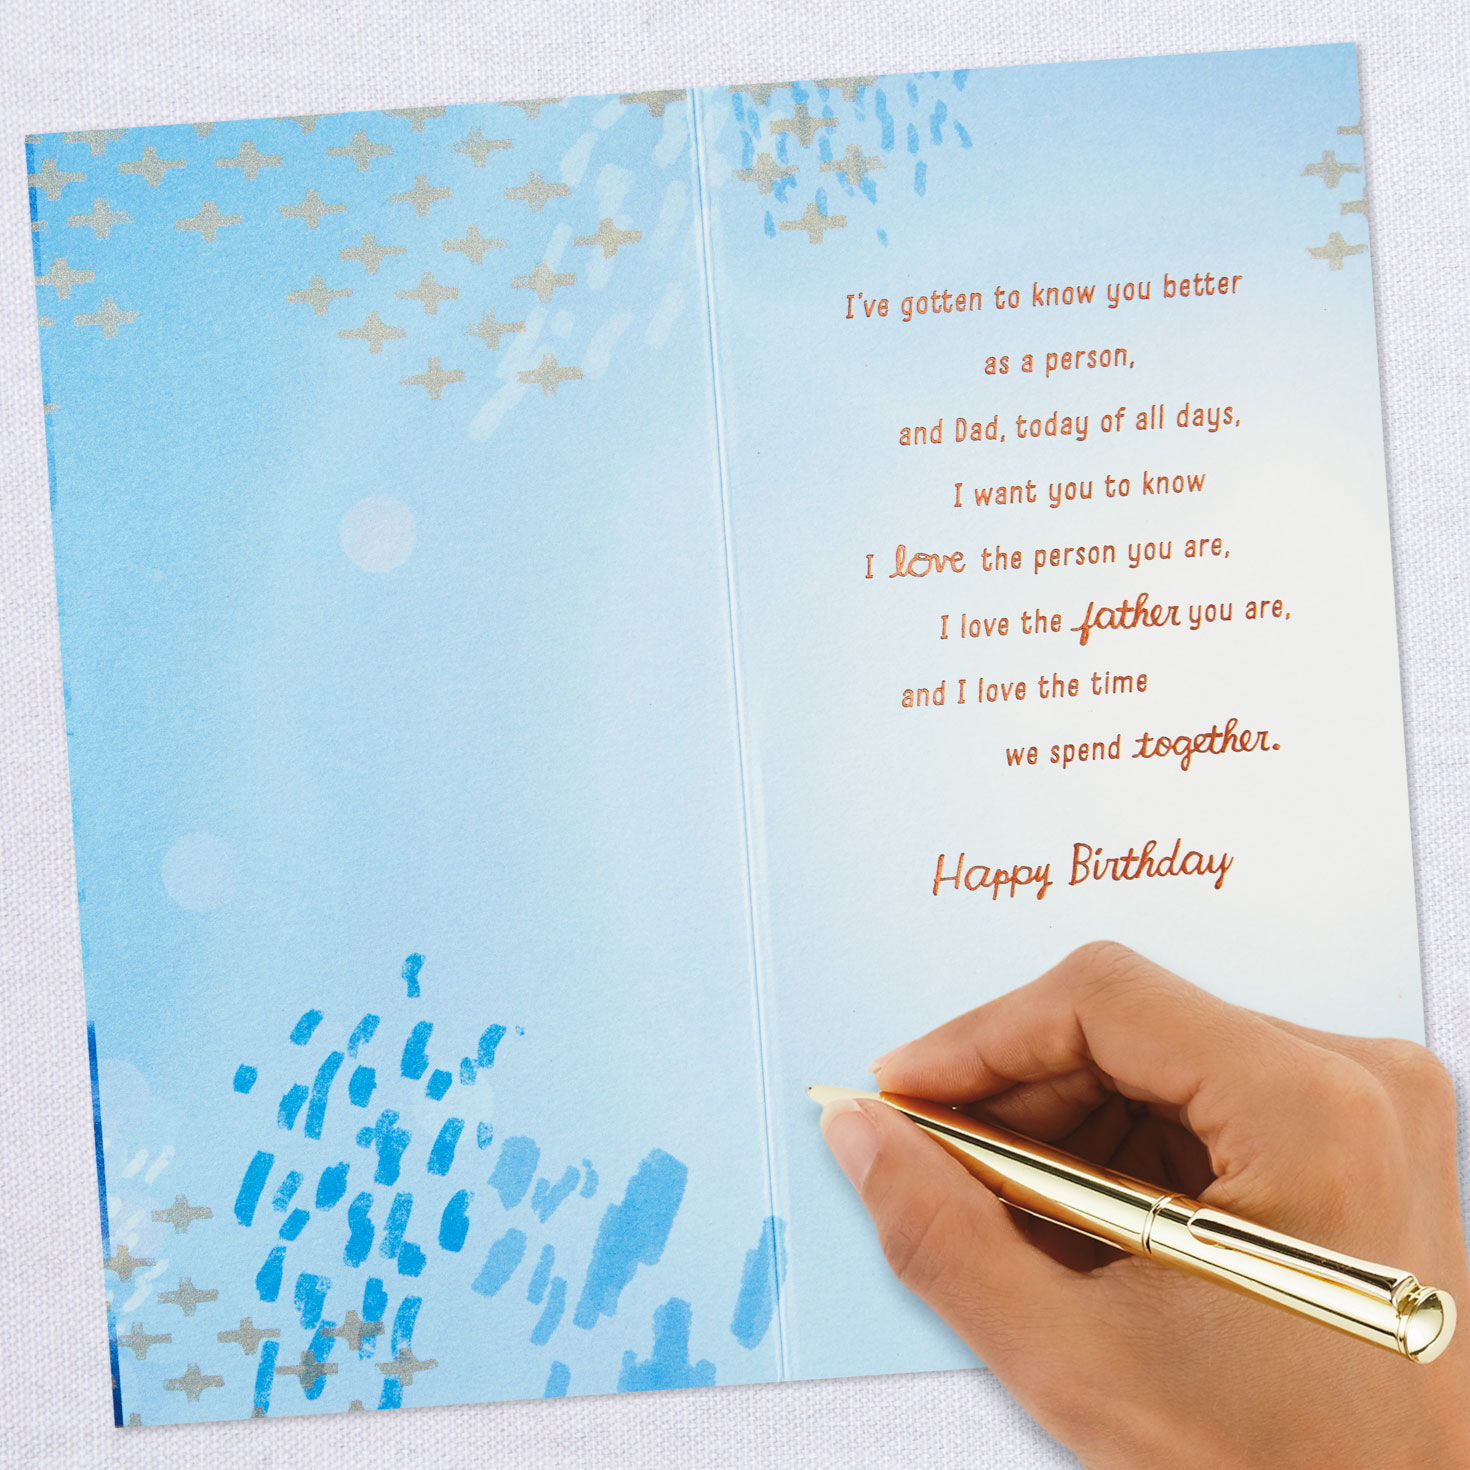 I've gotten to know you better
as a person,
and Dad, today of all days,
I want you to know
I love the person you are,
I love the father you are,
and I love the time
we spend together.
Happy Birthday